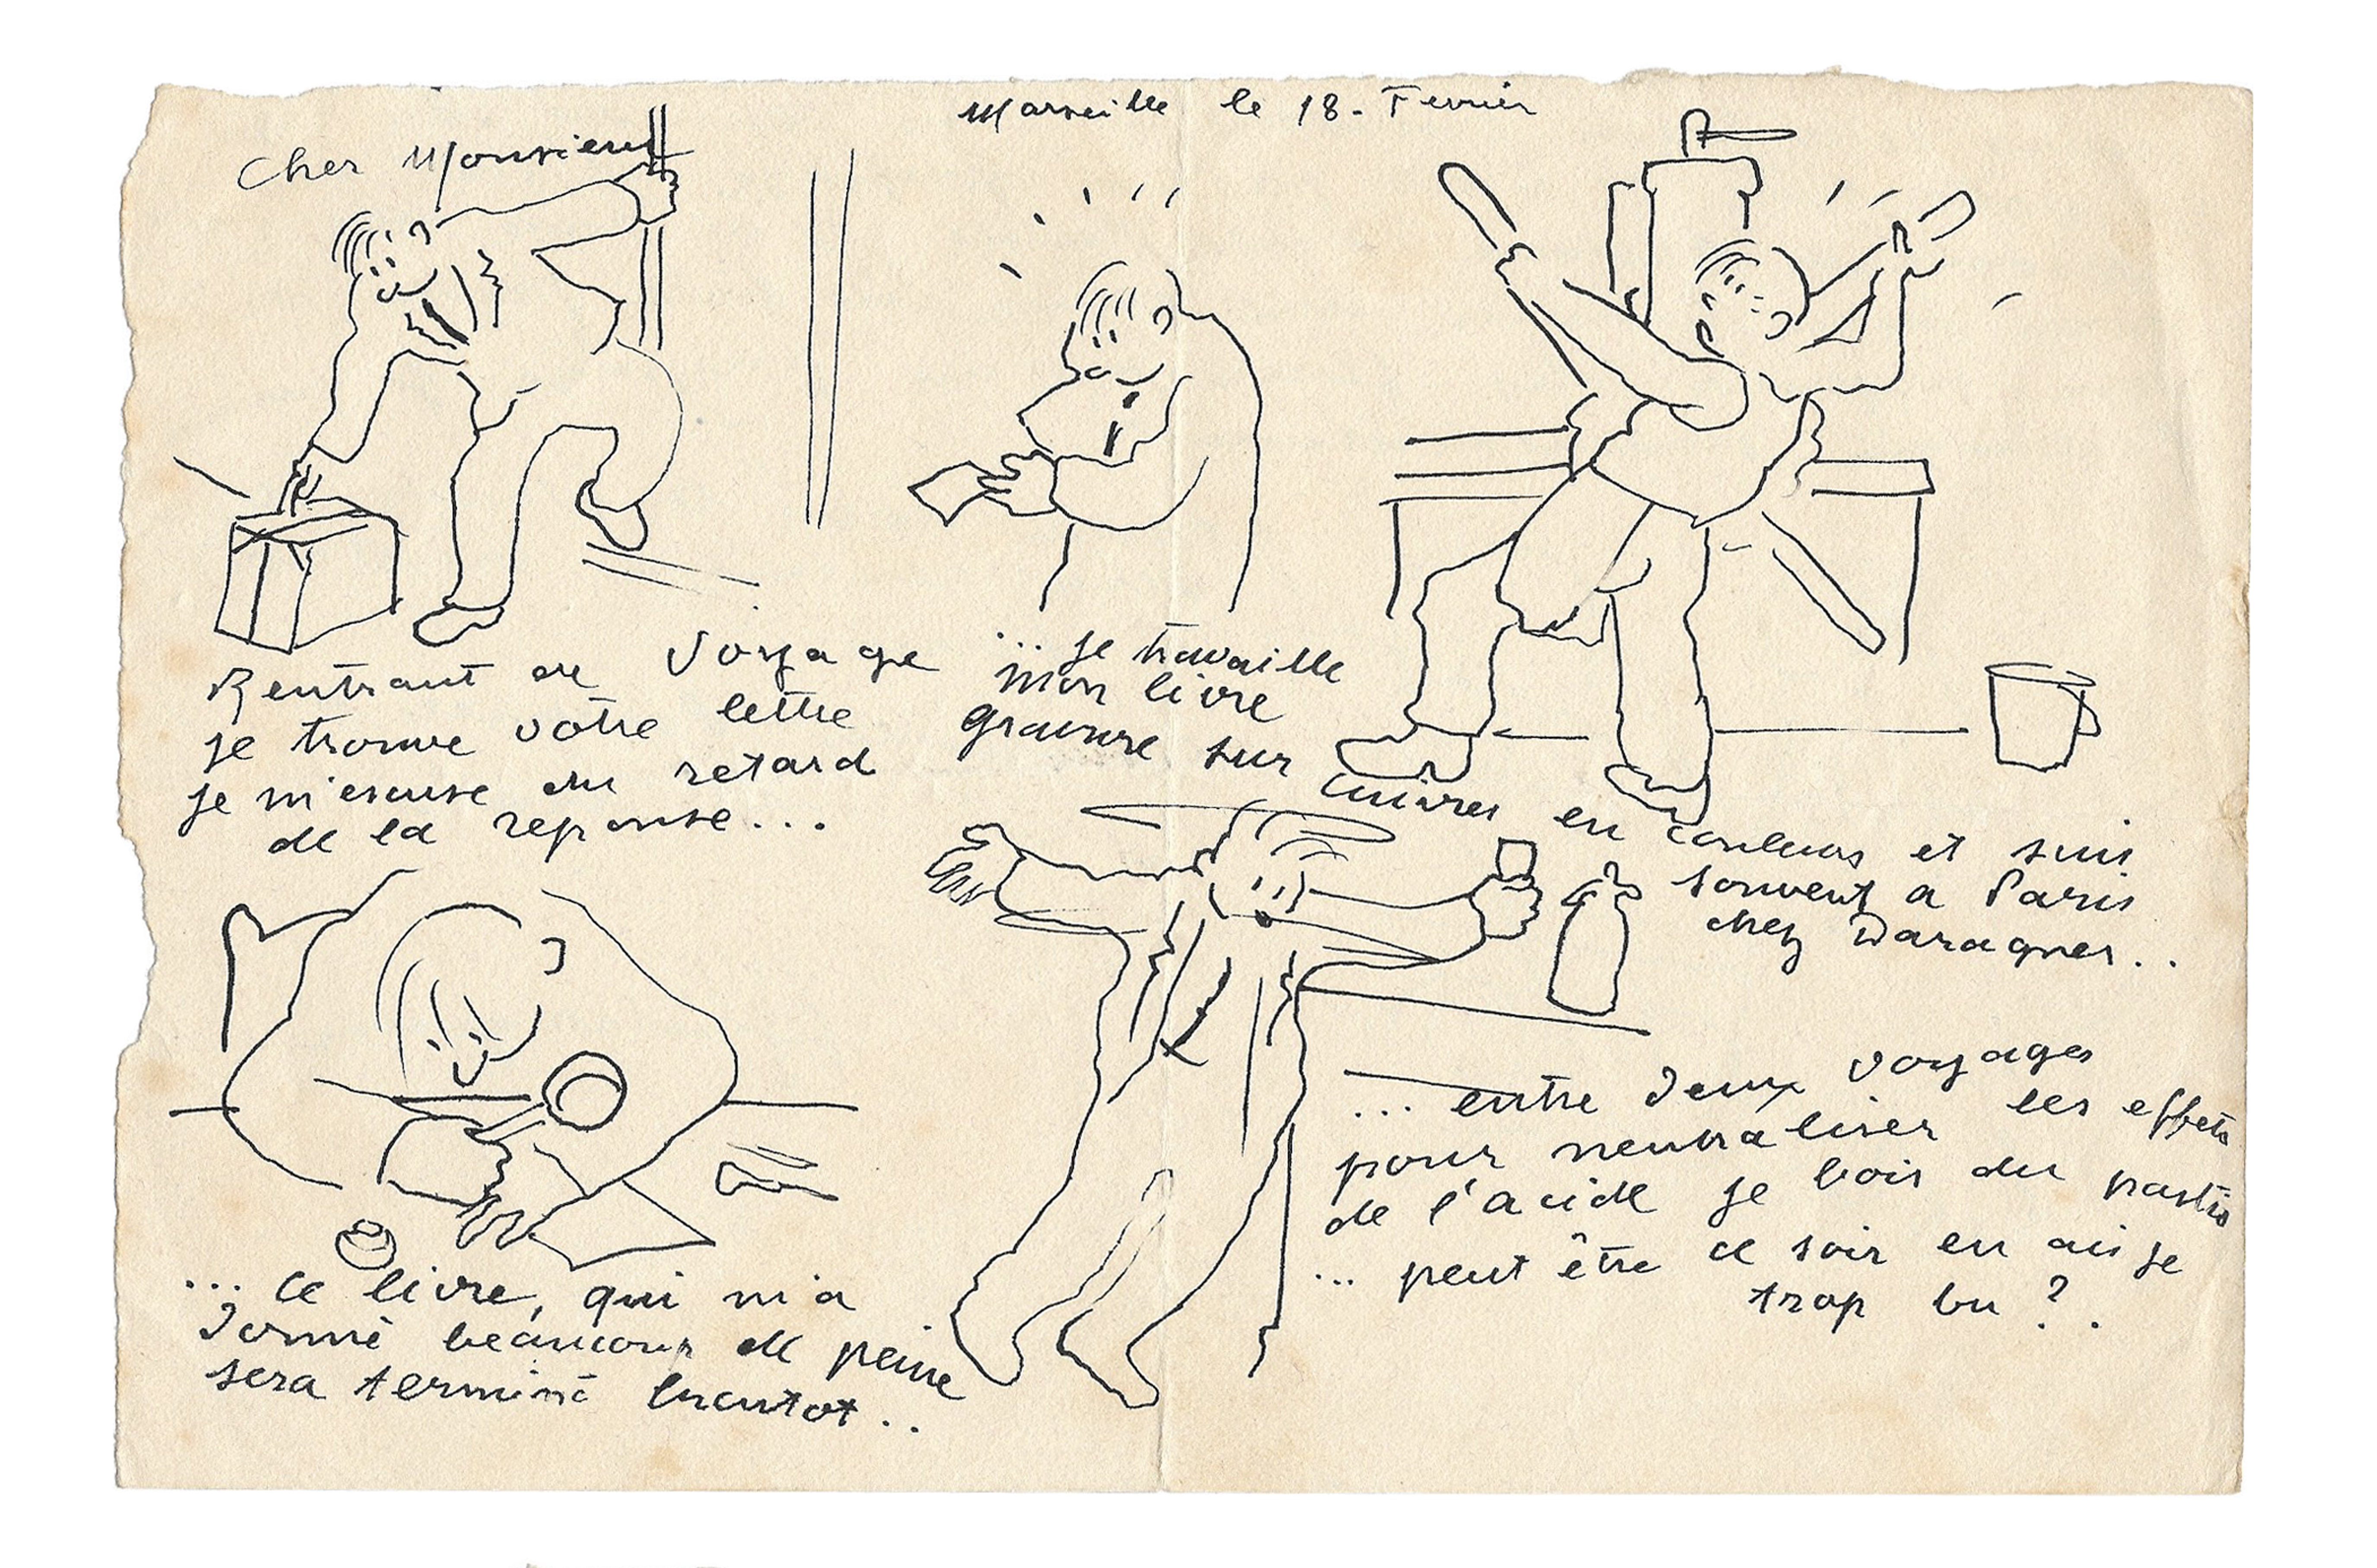 Marseille le 18. Fevrier
Cher Monsieur
Rentrant de voyage
je trouve votre lettre
je m'escuse du retard
de la reponse...
... je travaille
mon livre
gravure sur
cuivres en couleurs et suis
souvent a Paris
chez Daragnes..
... ce livre, qui m'a
donné beaucoup de peine
sera terminé bientot..
... entre deux voyages
pour neutraliser les effets
de l'acide je bois du pastis
... peut être ce soir en ai je
trop bu ?.